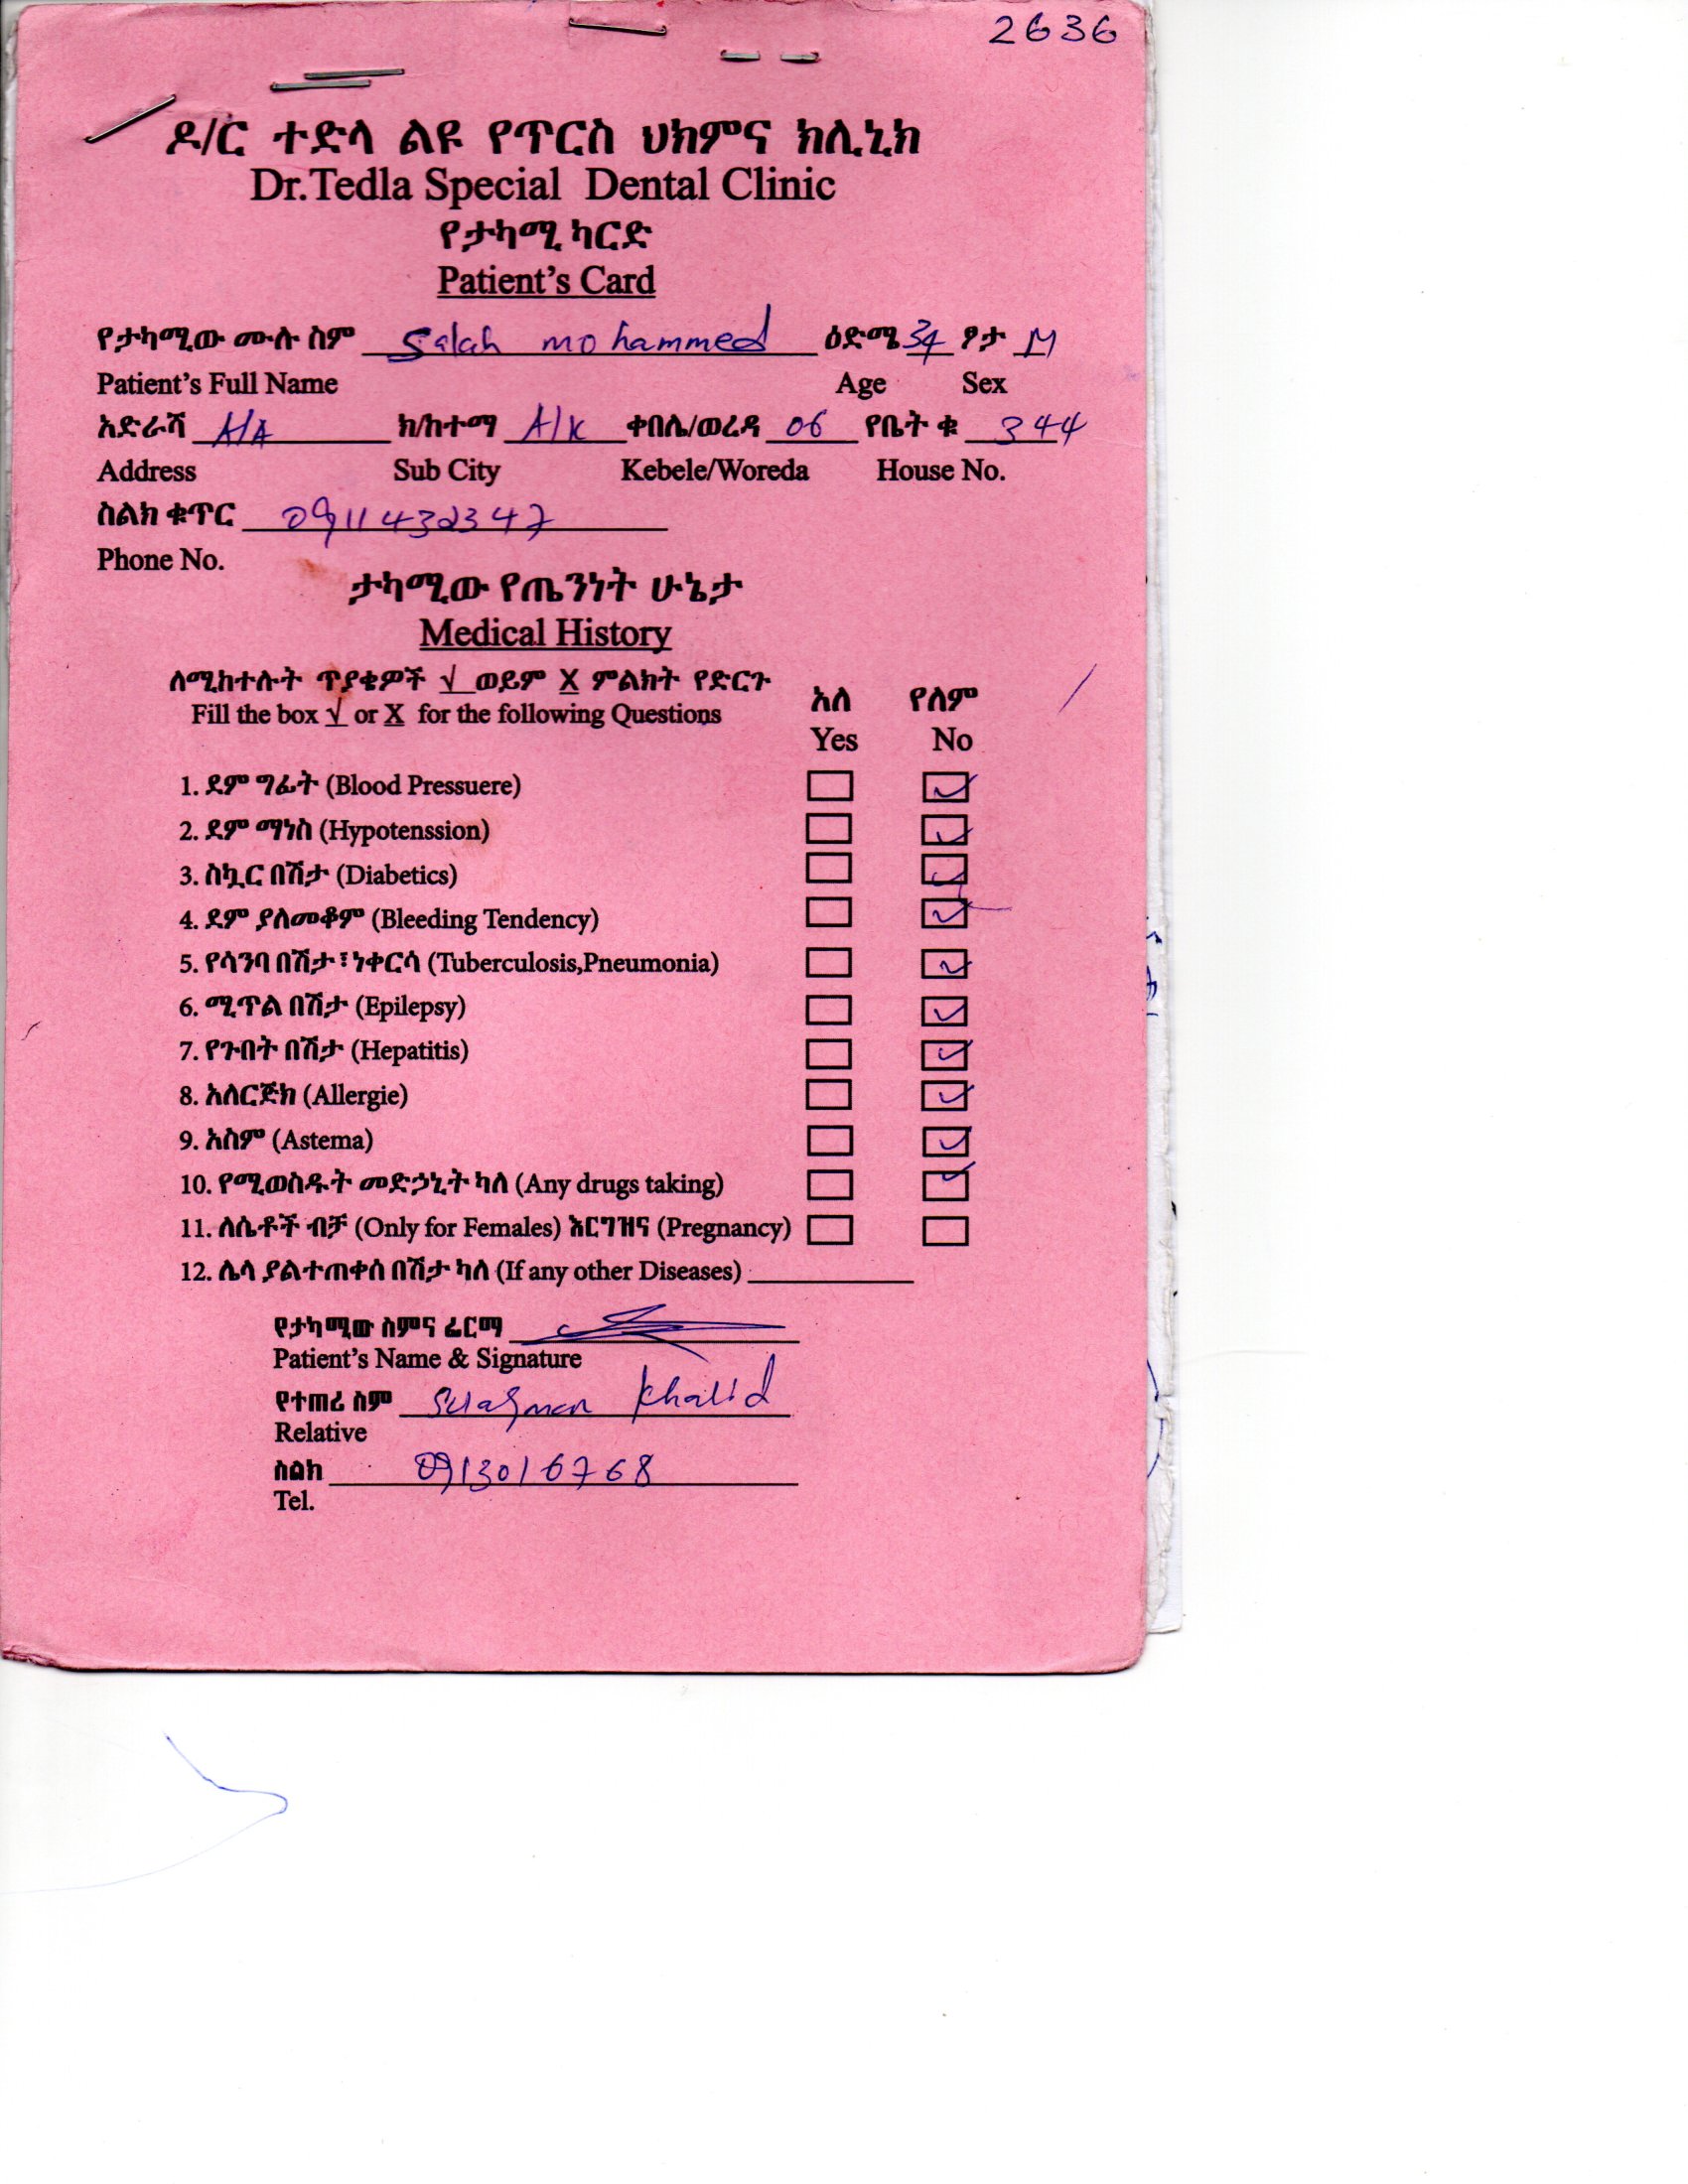 2636
ዶ/ር ተድላ ልዩ የጥርስ ህክምና ክሊኒክ
Dr.Tedla Special Dental Clinic
የታካሚ ካርድ
Patient's Card
የታካሚው ሙሉ ስም Salah mohammed ዕድሜ 34 ፆታ M
Patient's Full Name Age Sex
አድራሻ A/A ክ/ከተማ A/K ቀበሌ/ወረዳ 06 የቤት ቁ 344
Address Sub City Kebele/Woreda House No.
ስልክ ቁጥር 0911432347
Phone No.
ታካሚው የጤንነት ሁኔታ
Medical History
ለሚከተሉት ጥያቄዎች √ ወይም X ምልክት የድርጉ አለ የለም
Fill the box √ or X for the following Questions
Yes No
1. ደም ግፊት (Blood Pressuere) ✓
2. ደም ማነስ (Hypotenssion) ✓
3. ስኳር በሽታ (Diabetics) ✓
4. ደም ያለመቆም (Bleeding Tendency) ✓
5. የሳንባ በሽታ፣ነቀርሳ (Tuberculosis,Pneumonia) ✓
6. ሚጥል በሽታ (Epilepsy) ✓
7. የጉበት በሽታ (Hepatitis) ✓
8. አለርጅክ (Allergie) ✓
9. አስም (Astema) ✓
10. የሚወስዱት መድኃኒት ካለ (Any drugs taking) ✓
11. ለሴቶች ብቻ (Only for Females) እርግዝና (Pregnancy)
12. ሌላ ያልተጠቀሰ በሽታ ካለ (If any other Diseases)
የታካሚው ስምና ፊርማ
Patient's Name & Signature
የተጠሪ ስም Khalid
Relative
ስልክ 0913016768
Tel.